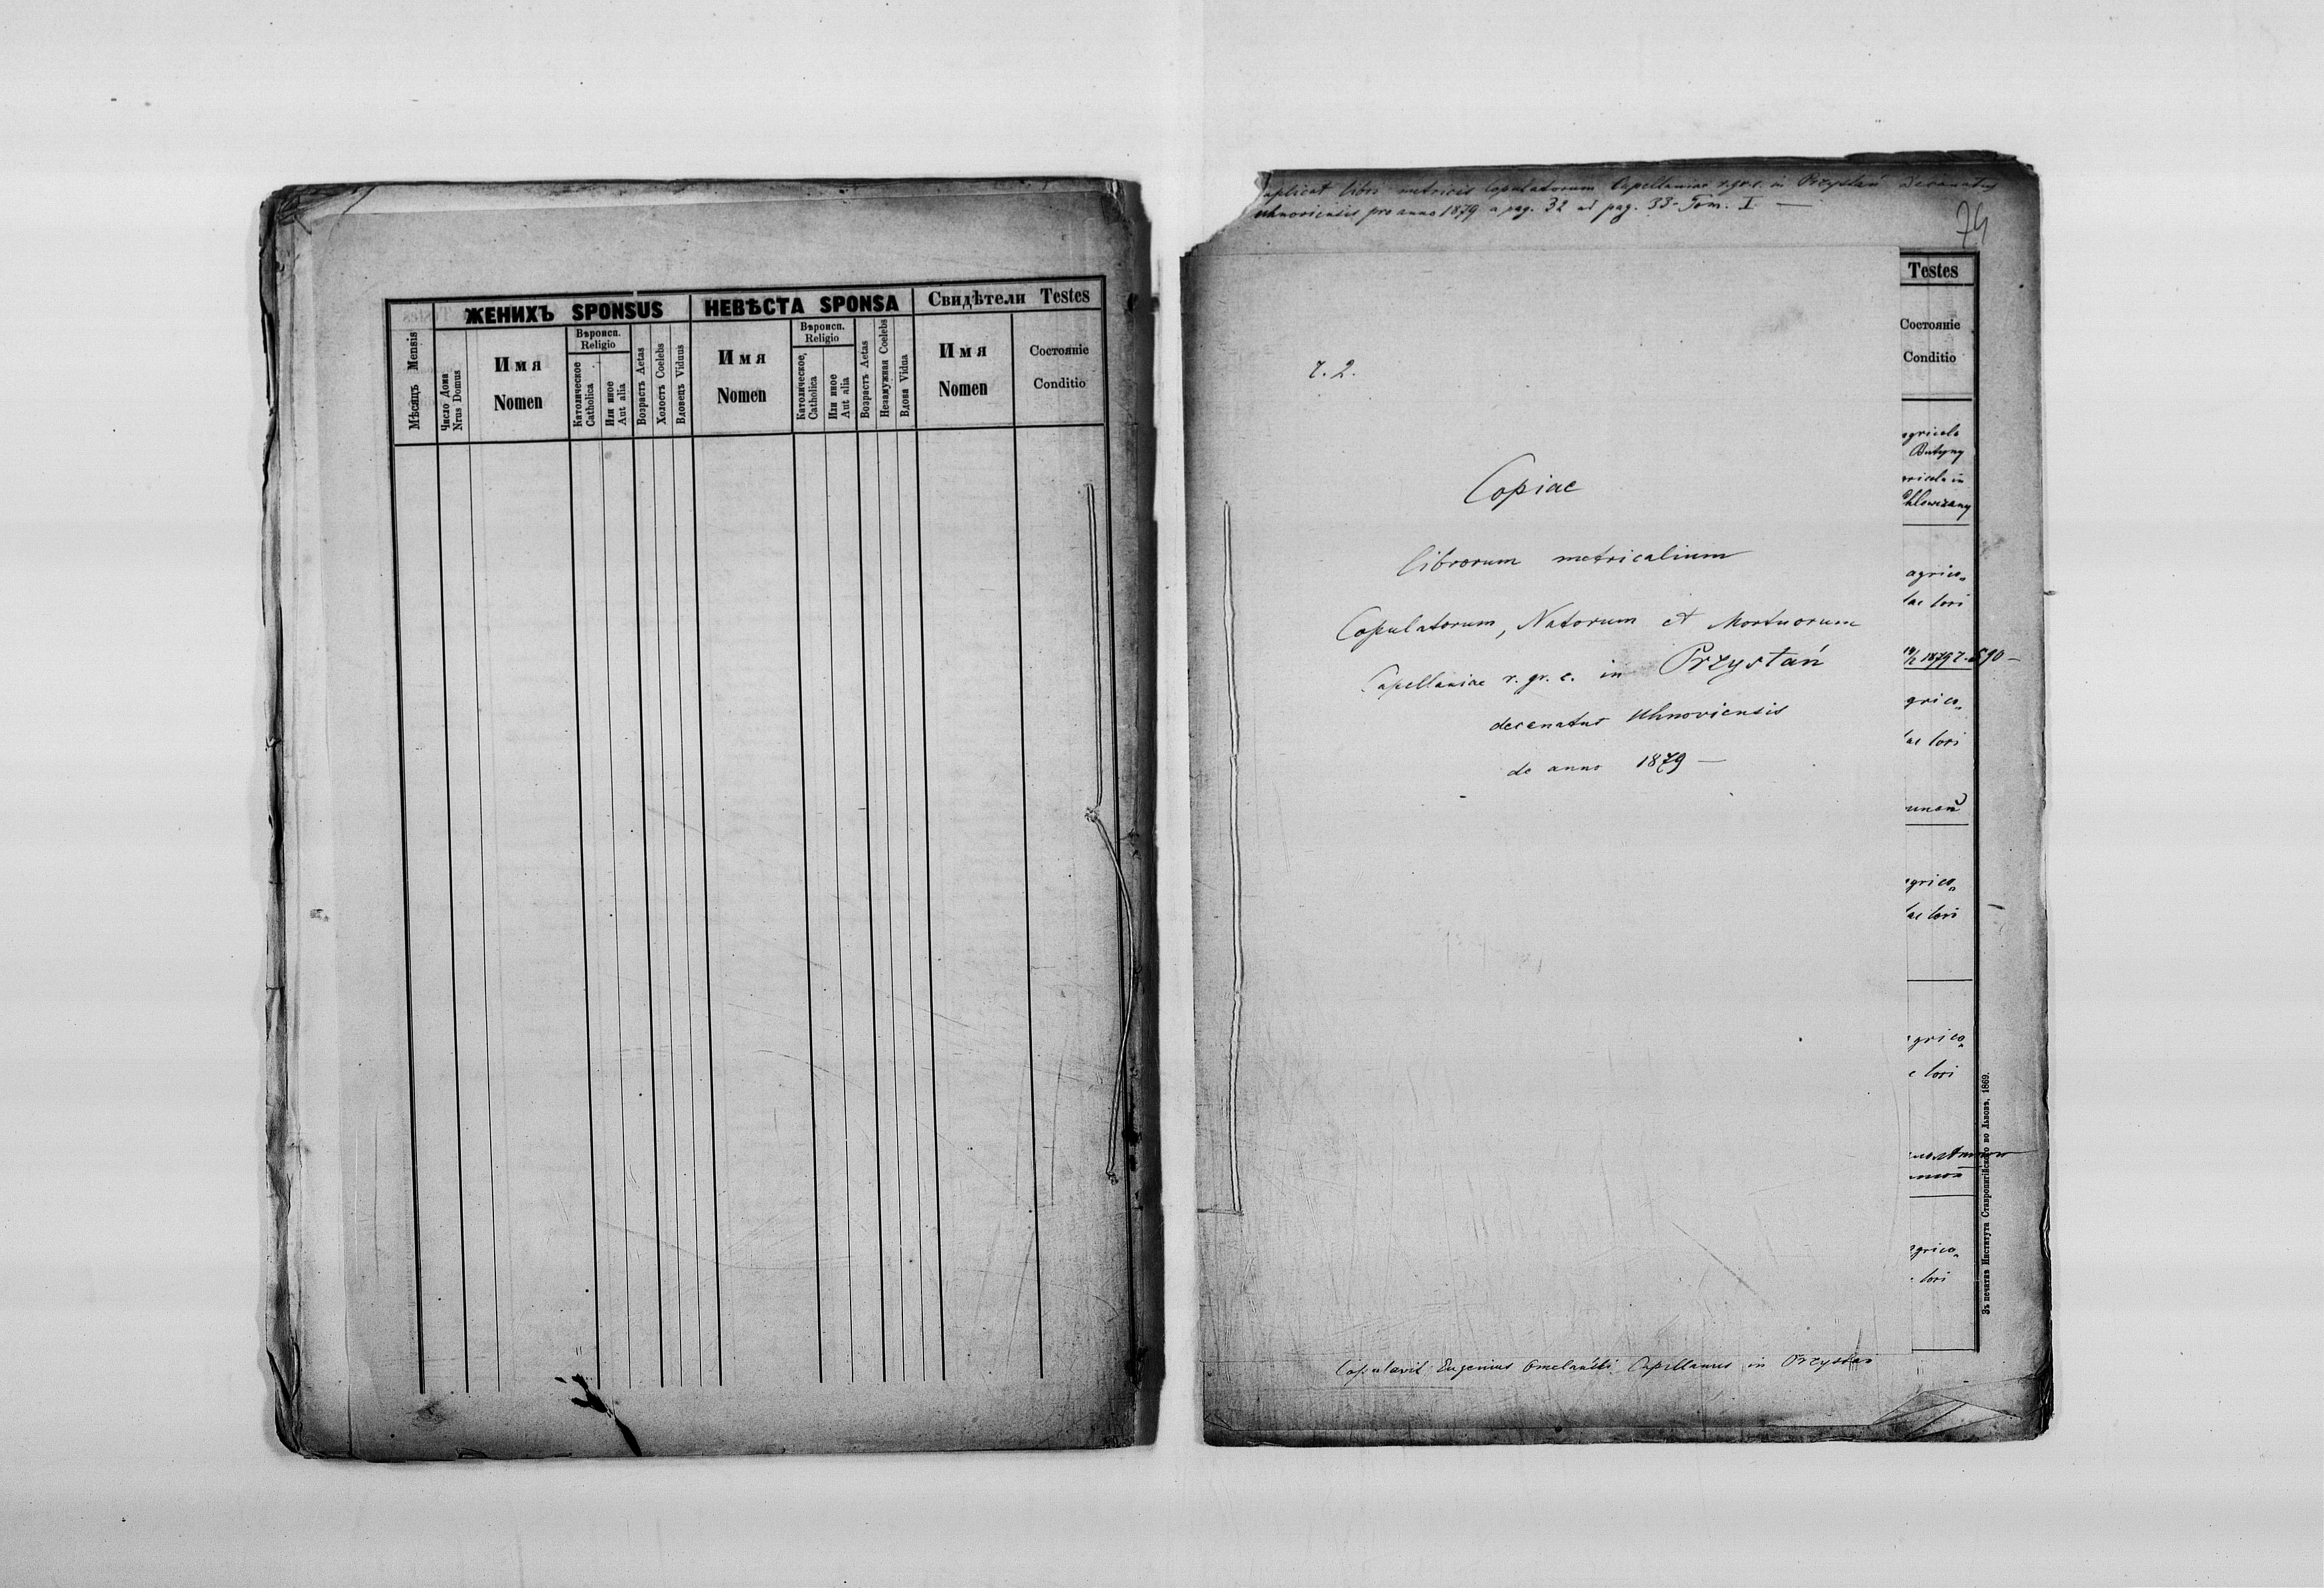 ЖЕНИХЪ SPONSUS
НЕВѢСТА SPONSA
Свидѣтели Testes
Мѣсяцъ Mensis
Число Дома
Nrus Domus
Имя
Nomen
Вѣроисп.
Religio
Католическое
Catholica
Или иное
Aut alia
Возрастъ Aetas
Холостъ Coelebs
Вдовецъ Viduus
Имя
Nomen
Вѣроисп.
Religio
Католическое,
Catholica
Или иное
Aut alia
Возрастъ Aetas
Незамужная Coelebs
Вдова Vidua
Имя
Nomen
Состояніе
Conditio
uplicat libri metricis Copulatorum Capellaniae r.gr.c. in Przystań decanatus
Uhnoviensis pro anno 1879 a pag. 32 ad pag. 33 Tom. I. —
74
r. 2.
Copiae
librorum metricalium
Copulatorum, Natorum et Mortuorum
Capellaniae r. gr. c. in Przystań
decanatus Uhnoviensis
de anno 1879 —
Testes
Состояніе
Conditio
agricola
Butyny
gricola in
Chlowczany
agrico„
lae loci
grico„
lae loci
agrico„
lae loci
grico„
e loci
agrico„
loci
Зъ печатнѣ Института Ставропигійского во Львовѣ, 1869.
Copulavit Eugenius Omelański Capellanus in Przystań